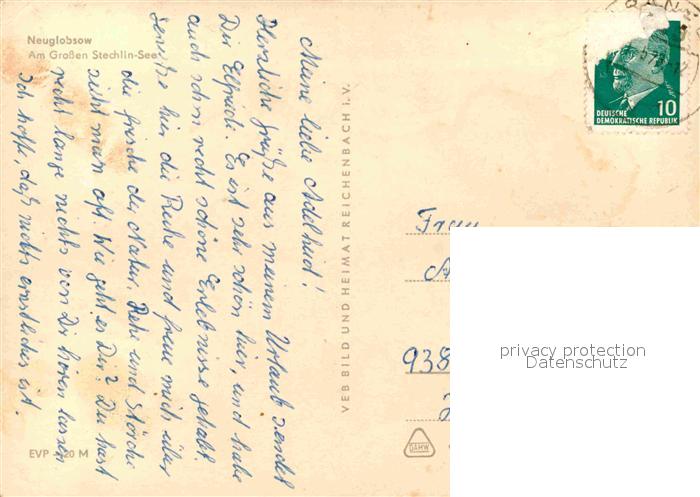 Neuglobsow
Am Großen Stechlin-See
Meine liebe Adelheid!
Herzliche Grüße aus meinem Urlaub sendet
Dir Elfriede. Es ist sehr schön hier, und habe
auch schon recht schöne Erlebnisse gehabt.
Genieße hier die Ruhe und freue mich über
die frische der Natur. Rehe und Störche
sieht man oft. Wie geht es Dir? Du hast
recht lange nichts von Dir hören lassen
Ich hoffe, daß nichts ernstliches ist.
EVP -,20 M
VEB BILD UND HEIMAT REICHENBACH i. V.
10
DEUTSCHE
DEMOKRATISCHE REPUBLIK
Frau
938
DAMW
privacy protection
Datenschutz